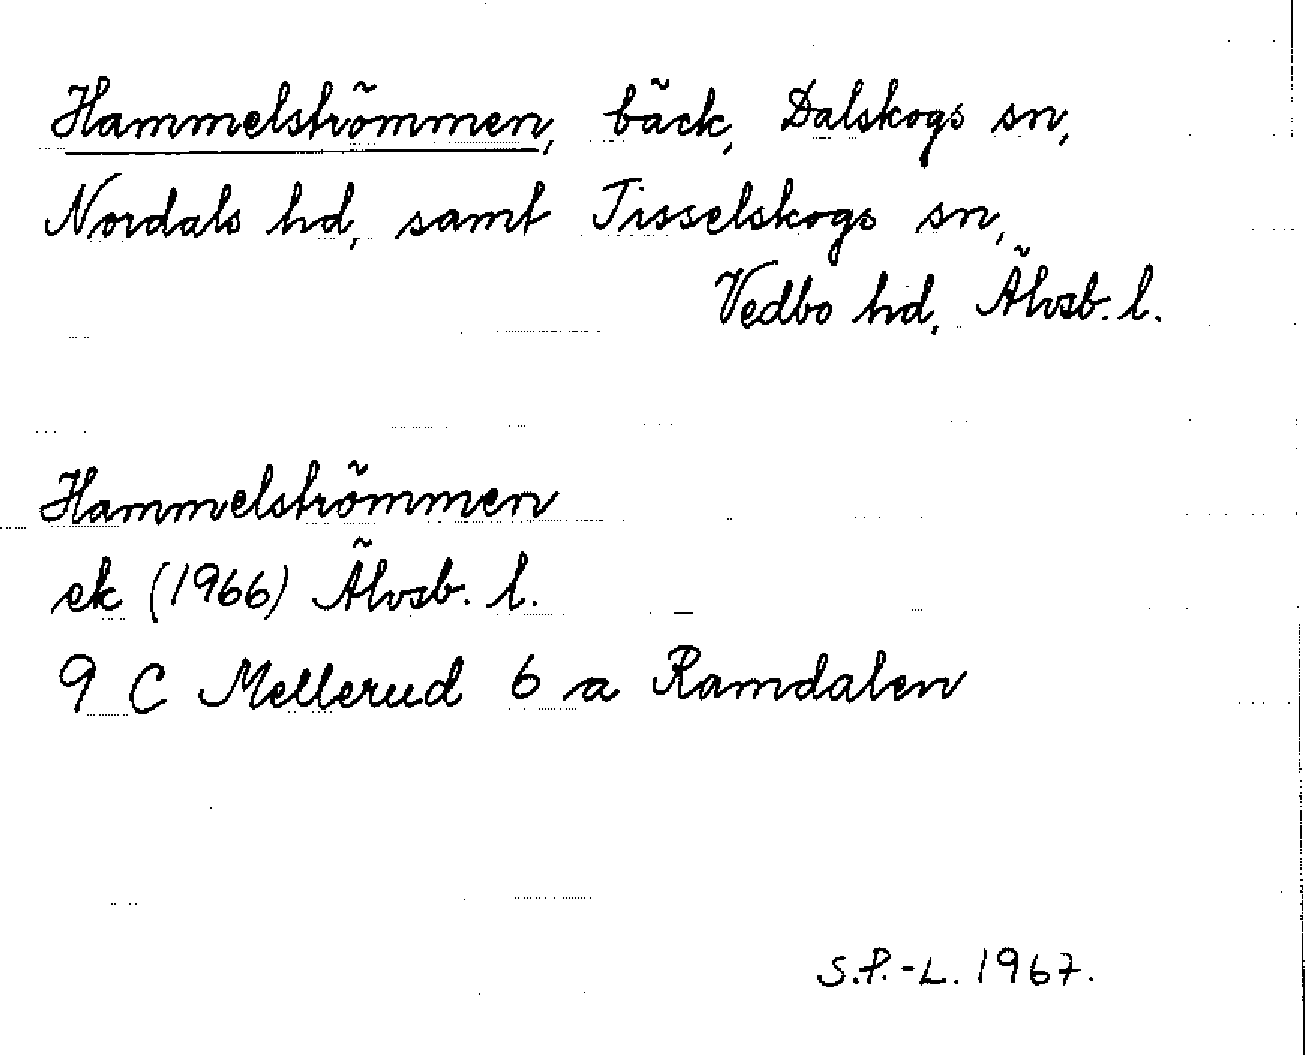 Hammelströmmen, bäck, Dalskogs sn,
Nordals hd, samt Tisselskogs sn,
Vedbo hd, Älvsb. l.
Hammelströmmen
ek (1966) Älvsb. l.
9 C Mellerud 6 a Ramdalen
S.P.-L. 1967.